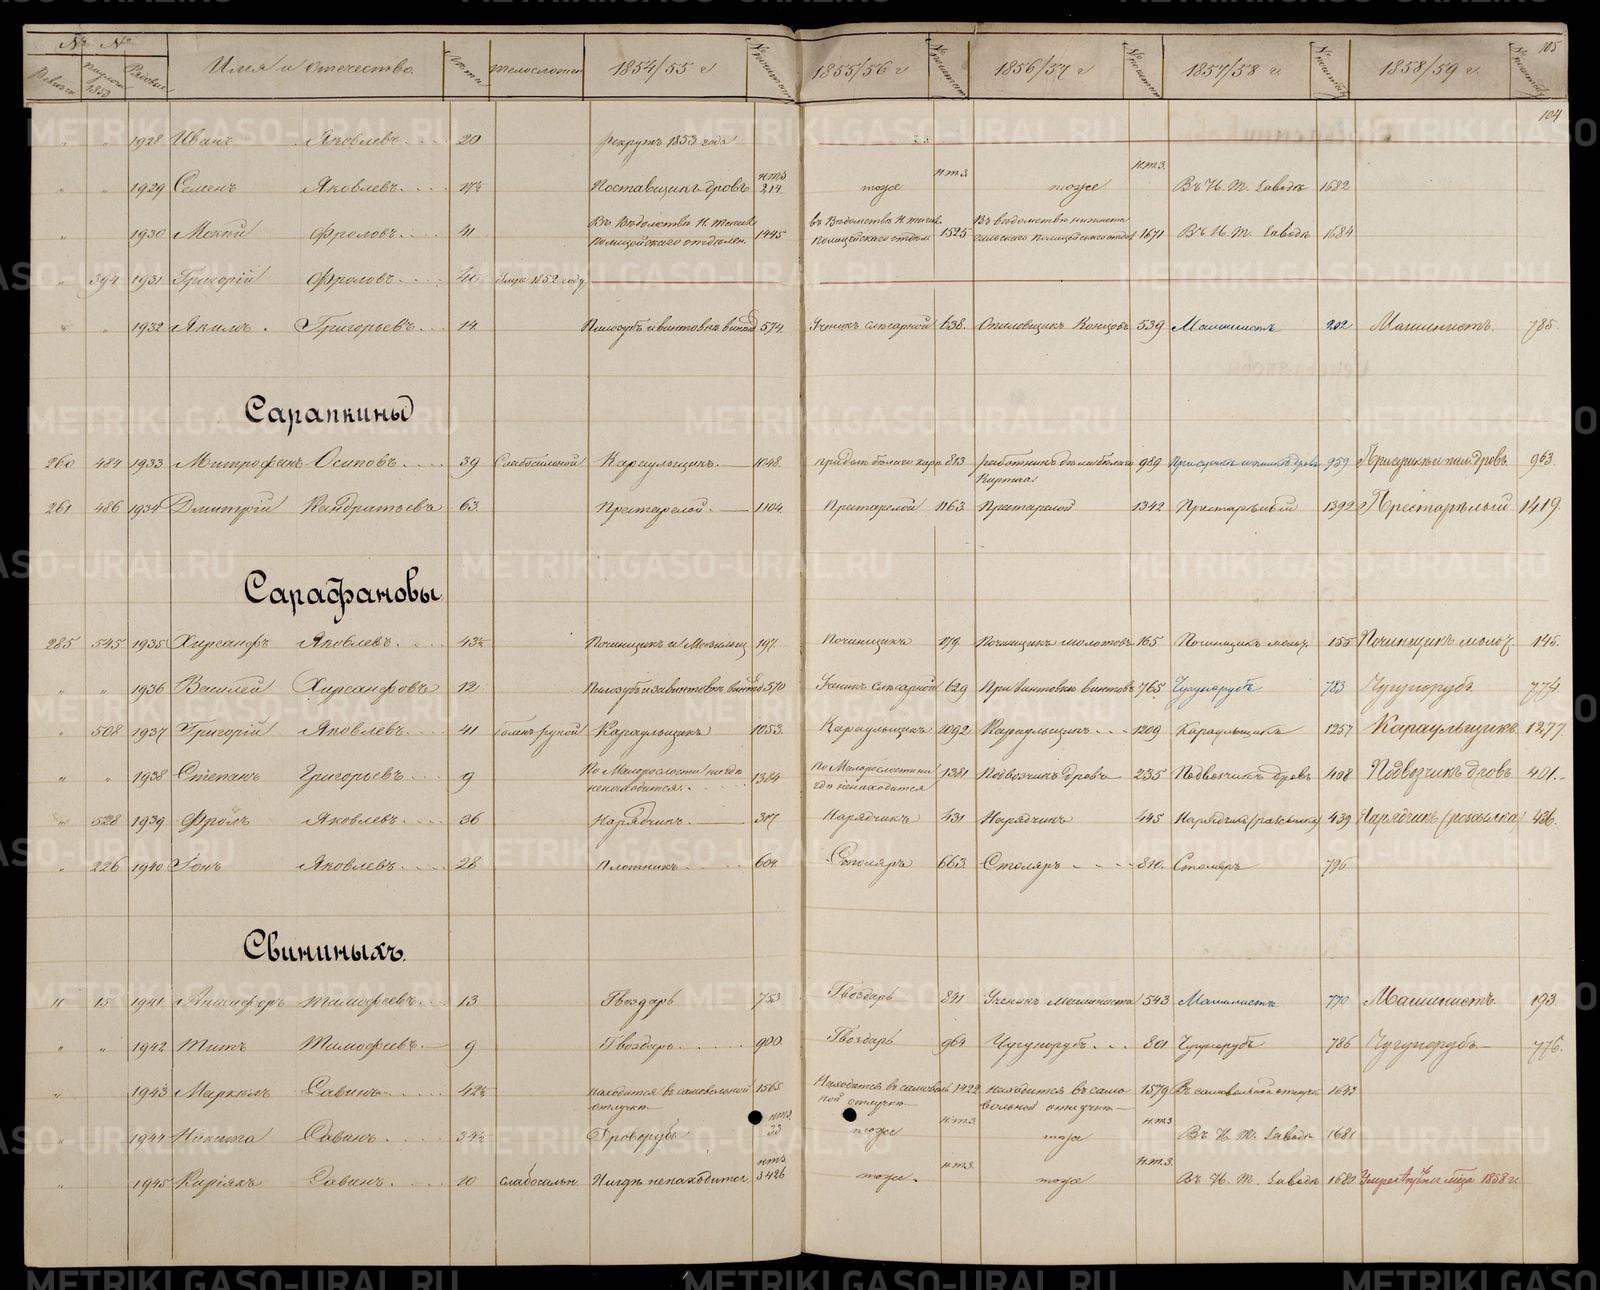 № № Имя и отечество. Лѣта 1854/55 г. 1855/56 г. 1856/57 г. 1857/58 г. 1858/59 г. 105
104
1928 Иванъ Яковлевъ. 20 рекрутъ 1853 года
1929 Семенъ Яковлевъ. 17½ Поставщикъ дровъ Н.Т.З. 214 тоже Н.Т.З. тоже Н.Т.З. Въ Н. Т. Заводѣ 1682
1930 Мокей Фроловъ. 41 Въ Вѣдомствѣ Н. Тагил. Полицейскаго отдѣлен. 1445 въ Вѣдомствѣ Н. тагил. Полицейскаго отдѣл. 1525 Въ вѣдомствѣ нижнета гильскаго Полицейскаго отдѣл. 1671 Въ Н. Т. Заводѣ 1684
394 1931 Григорій Фроловъ. 40 Умре 1852 году
1932 Якимъ. Григорьевъ. 14 574 Ученикъ слесарной 638. Опиловщикъ Концовъ 539 Машинистъ 202 Машинистъ. 785.
Сарапкины
260 484 1933 Митрофанъ Осиповъ. 39 Слабосильной Караульщикъ. 1048. 813 989 959 Присушкѣ и пил. дровъ 963
261 486 1934 Дмитрій Кандратьевъ 63. Престарелой. 1104. Престарелой 1163. Престарелой 1342 Престарѣлый 1392 Престарѣлый 1419.
Сарафановы
285 545 1935 Хирсанфъ Яковлевъ. 43½ Починщикъ 197. Починщикъ 179. Починщикъ молотовъ 165 Починщикъ молот. 155 Починщикъ молот. 145.
1936 Василей Хирсанфовъ 12 570 Ученикъ слесарной 629 При винтовкѣ винтовъ 765 Чугунорубъ 783 Чугунорубъ 774
508 1937 Григорій Яковлевъ. 41 боленъ рукой Караульщикъ 1053. Караульщикъ 1092 Караульщикъ 1209 Караульщикъ 1257 Караульщикъ 1277
1938 Степанъ Григорьевъ. 9 По Малорослости нигдѣ ненаходится. 1384 По Малорослости ни гдѣ ненаходится 1381 Подвозчикъ дровъ 235 Подвозчикъ дровъ 408 Подвозчикъ дровъ 401.
528 1939 Фролъ Яковлевъ. 36 Нарядчикъ. 317 Нарядчикъ 431 Нарядчикъ 445 Нарядчикъ (разсылка) 439 Нарядчикъ (розсылка) 426.
226 1940 Іонъ Яковлевъ. 28 Плотникъ. 604. Столяръ 663. Столяръ 810. Столяръ 796
Свининыхъ.
11 15 1941 Никифоръ Тимофеевъ. 13 Гвоздарь 753 Гвоздарь 831 Ученикъ машиниста 543 Машинистъ 770 Машинистъ 193.
1942 Титъ Тимофеевъ. 9 Гвоздарь. 900. Гвоздарь 964 Чугунорубъ. 801 Чугунорубъ 786 Чугунорубъ 776.
1943 Маркелъ Савинъ. 42½ находится въ самовольной отлучкѣ 1565 Находится въ самоволь ной отлучкѣ 1422 находится въ само вольной отлучкѣ 1579 Въ самовольной отлучкѣ 1643
1944 Никита Савинъ. 34½ Дроворубъ Н.Т.З. 33 тоже Н.Т.З. тоже Н.Т.З. Въ Н. Т. Заводѣ 1681
1945 Киріякъ Савинъ. 10 слабосильн. Нигдѣ ненаходится Н.Т.З. 3426 тоже. Н.Т.З. тоже Н.Т.З. Въ Н. Т. Заводѣ 1680
METRIKI.GASO-URAL.RU